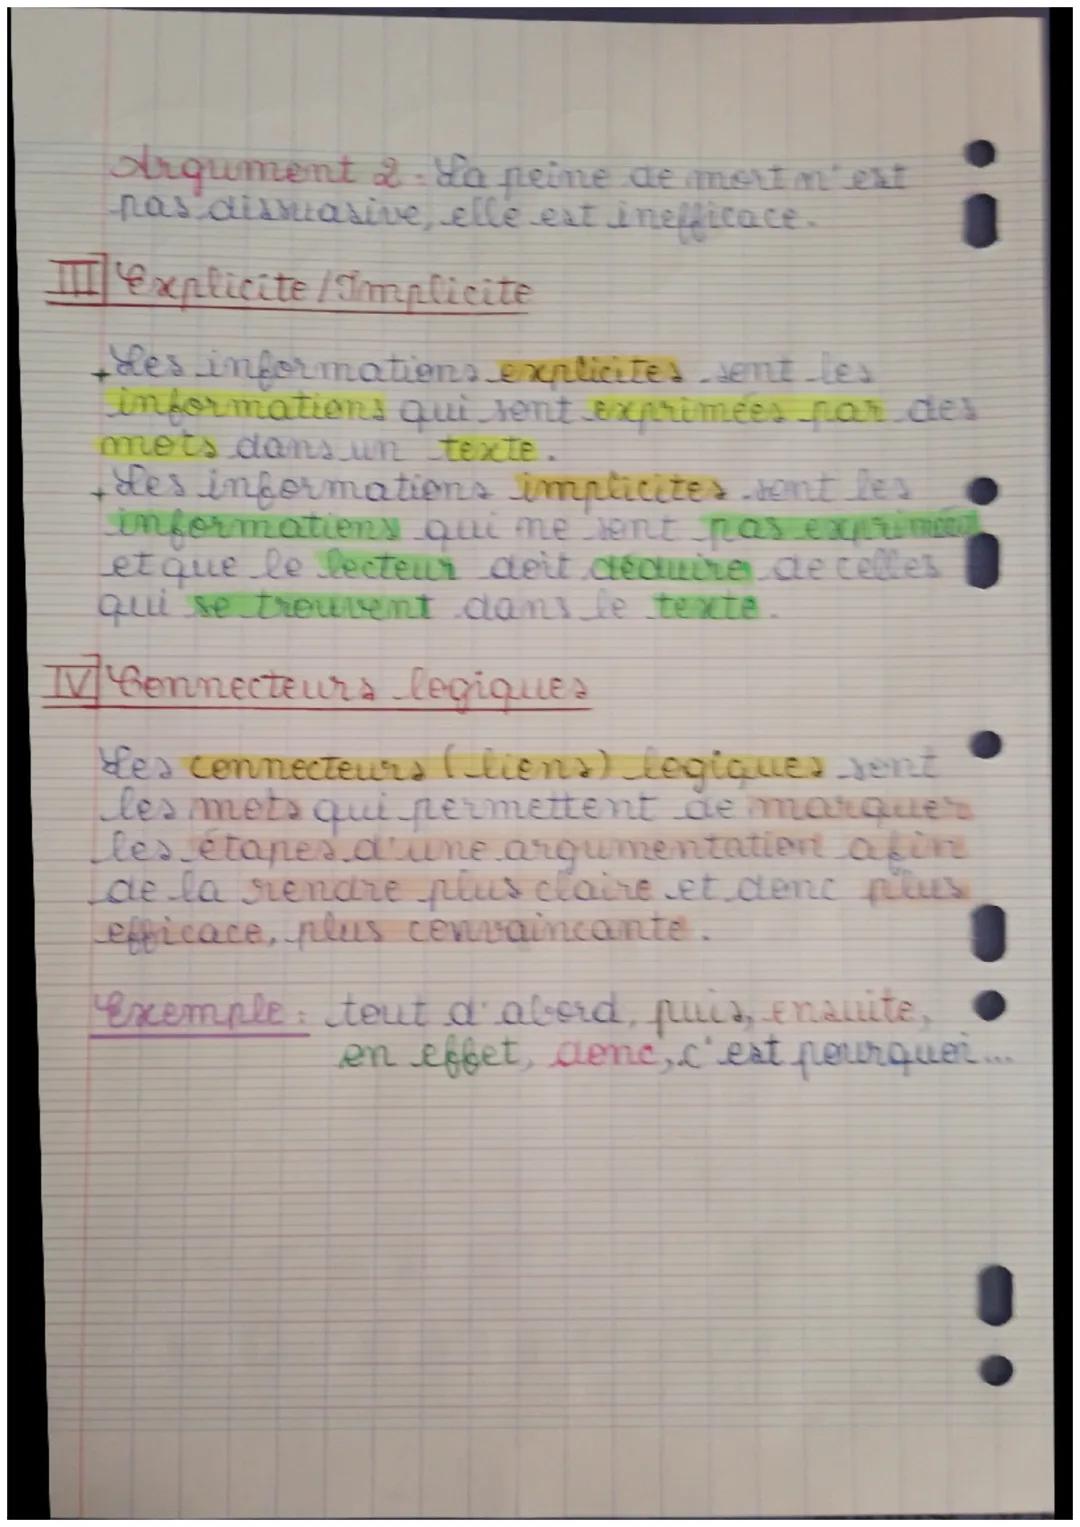 Argument 2 - La peine de mort n'est
pas dissuasive, elle est inefficace.
III Explicite / Implicite
+ Les informations explicites sont les
informations qui sont exprimées par des
mots dans un texte.
+ Les informations implicites sont les
informations qui ne sont pas exprimées
et que le lecteur doit déduire de celles
qui se trouvent dans le texte.
IV Connecteurs logiques
Les connecteurs (liens) logiques sont
les mots qui permettent de marquer
les étapes d'une argumentation afin
de la rendre plus claire et donc plus
efficace, plus convaincante.
Exemple : tout d'abord, puis, ensuite,
en effet, donc, c'est pourquoi...